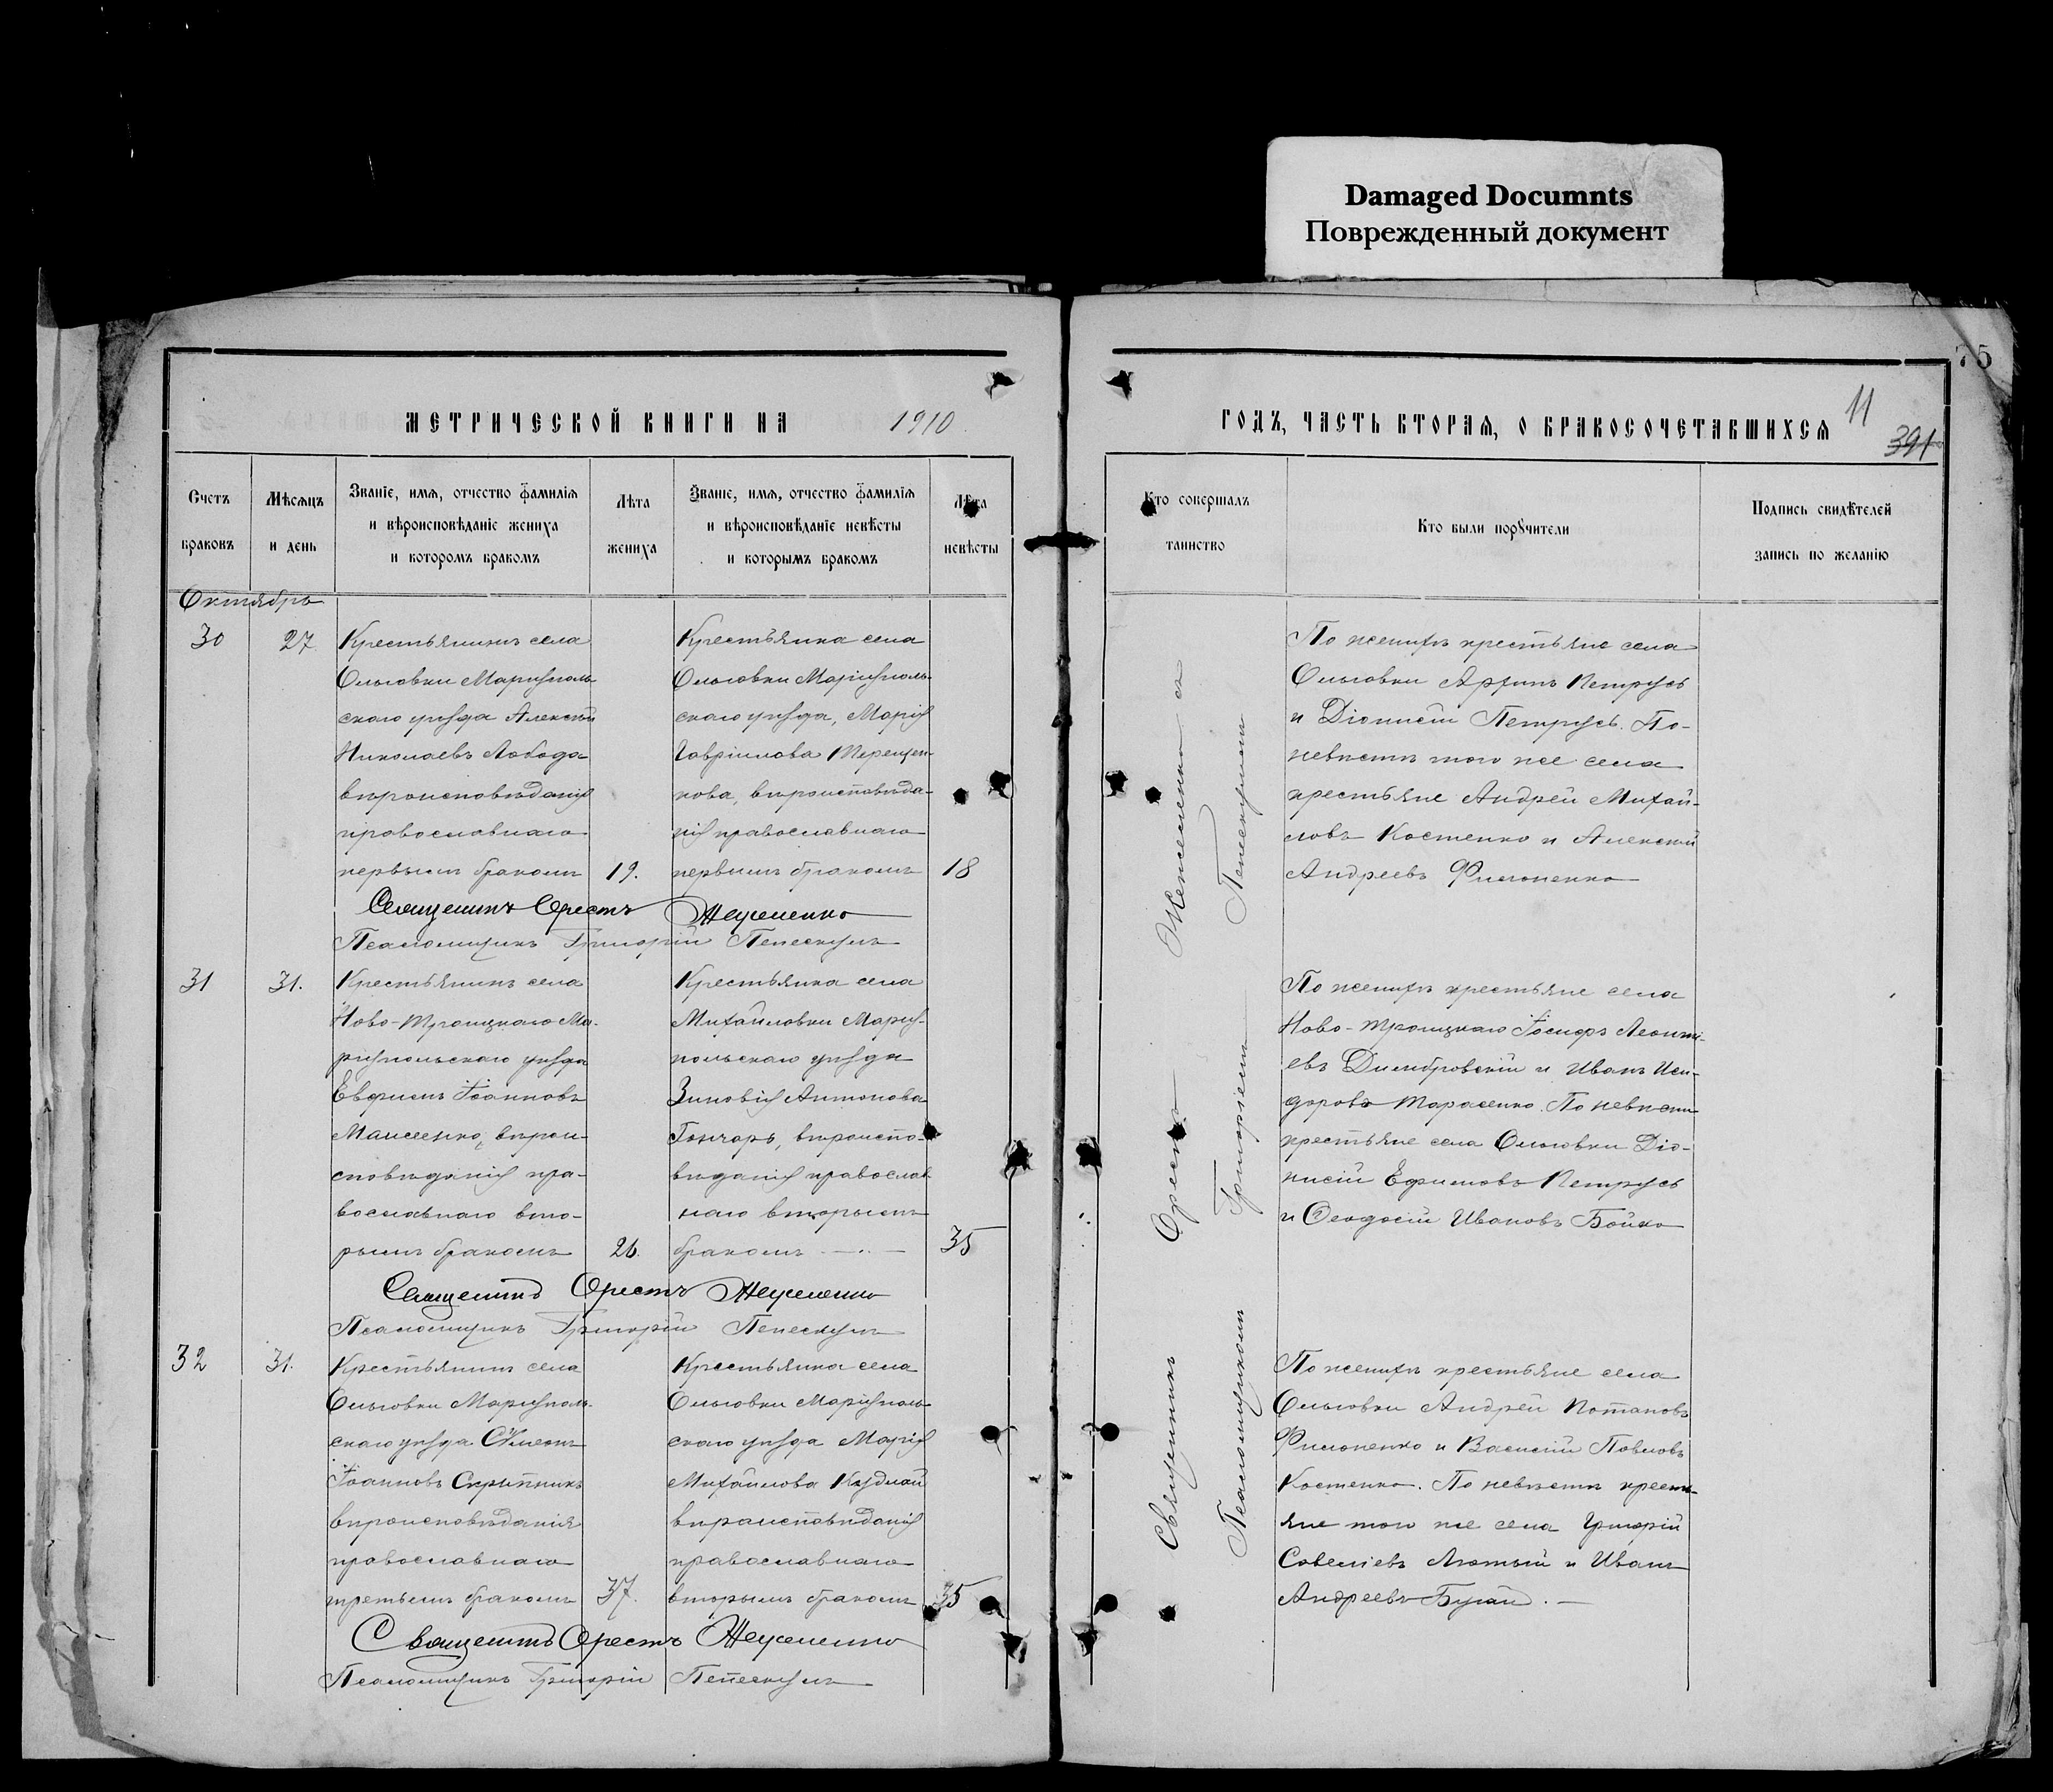 Damaged Documnts
Поврежденный документ
75
МЕТРИЧЕСКОЙ КНИГИ НА 1910
ГОДЪ, ЧАСТЬ ВТОРАЯ, О БРАКОСОЧЕТАВШИХСЯ
11
391
Счетъ
браковъ
Мѣсяцъ
и день
Званіе, имя, отчество фамилія
и вѣроисповѣданіе жениха
и которомъ бракомъ
Лѣта
жениха
Званіе, имя, отчество фамилія
и вѣроисповѣданіе невѣсты
и которымъ бракомъ
Лѣта
невѣсты
Кто совершалъ
таинство
Кто были поручители
Подпись свидѣтелей
запись по желанію
Октябрь
30
27
Крестьянинъ села
Ольговки Маріуполь-
скаго уѣзда Алексѣй
Николаевъ Лобода
вѣроисповѣданія
православнаго
первымъ бракомъ
19.
Крестьянка села
Ольговки Маріуполь-
скаго уѣзда, Марія
Гавріилова Терещен-
кова, вѣроисповѣда-
нія православнаго
первымъ бракомъ
18
По женихѣ крестьяне села
Ольговки Петрусь
и Діонисій Петрусь. По
невѣстѣ того же села
крестьяне Андрей Михай-
ловъ Костенко и Алексѣй
Андреевъ Филоненко
Священникъ Орестъ
Псаломщикъ Григорій
31
31.
Крестьянинъ села
Ново-Троицкаго Ма-
ріупольскаго уѣзда
Евфимъ Іоанновъ
вѣрои-
сповѣданія пра-
вославнаго вто-
рымъ бракомъ
26.
Крестьянка села
Михайловки Маріу-
польскаго уѣзда
Зиновія Антонова
Гончаръ, вѣроиспо-
вѣданія православ-
наго вторымъ
бракомъ
35
По женихѣ крестьяне села
Ново-Троицкаго Іосифъ Леонті-
евъ Димбровскій и Иванъ Иси-
доровъ Тарасенко. По невѣстѣ
крестьяне села Ольговки Діо-
нисій Ефимовъ Петрусь
и Феодосій Ивановъ Бойко
Священникъ Орестъ
Псаломщикъ Григорій
32
31.
Крестьянинъ села
Ольговки Маріуполь-
скаго уѣзда Симеонъ
Іоанновъ Скрипникъ
вѣроисповѣданія
православнаго
третьимъ бракомъ
37.
Крестьянка села
Ольговки Маріуполь-
скаго уѣзда Марія
Михайлова Кудлай
вѣроисповѣданія
православнаго
вторымъ бракомъ
35
По женихѣ крестьяне села
Ольговки Андрей Потаповъ
Филоненко и Василій Павловъ
Костенко. По невѣстѣ кресть-
яне того же села Григорій
Савеліевъ Лютый и Иванъ
Андреевъ
Священникъ Орестъ
Псаломщикъ Григорій
Священникъ Орестъ
Псаломщикомъ Григоріемъ